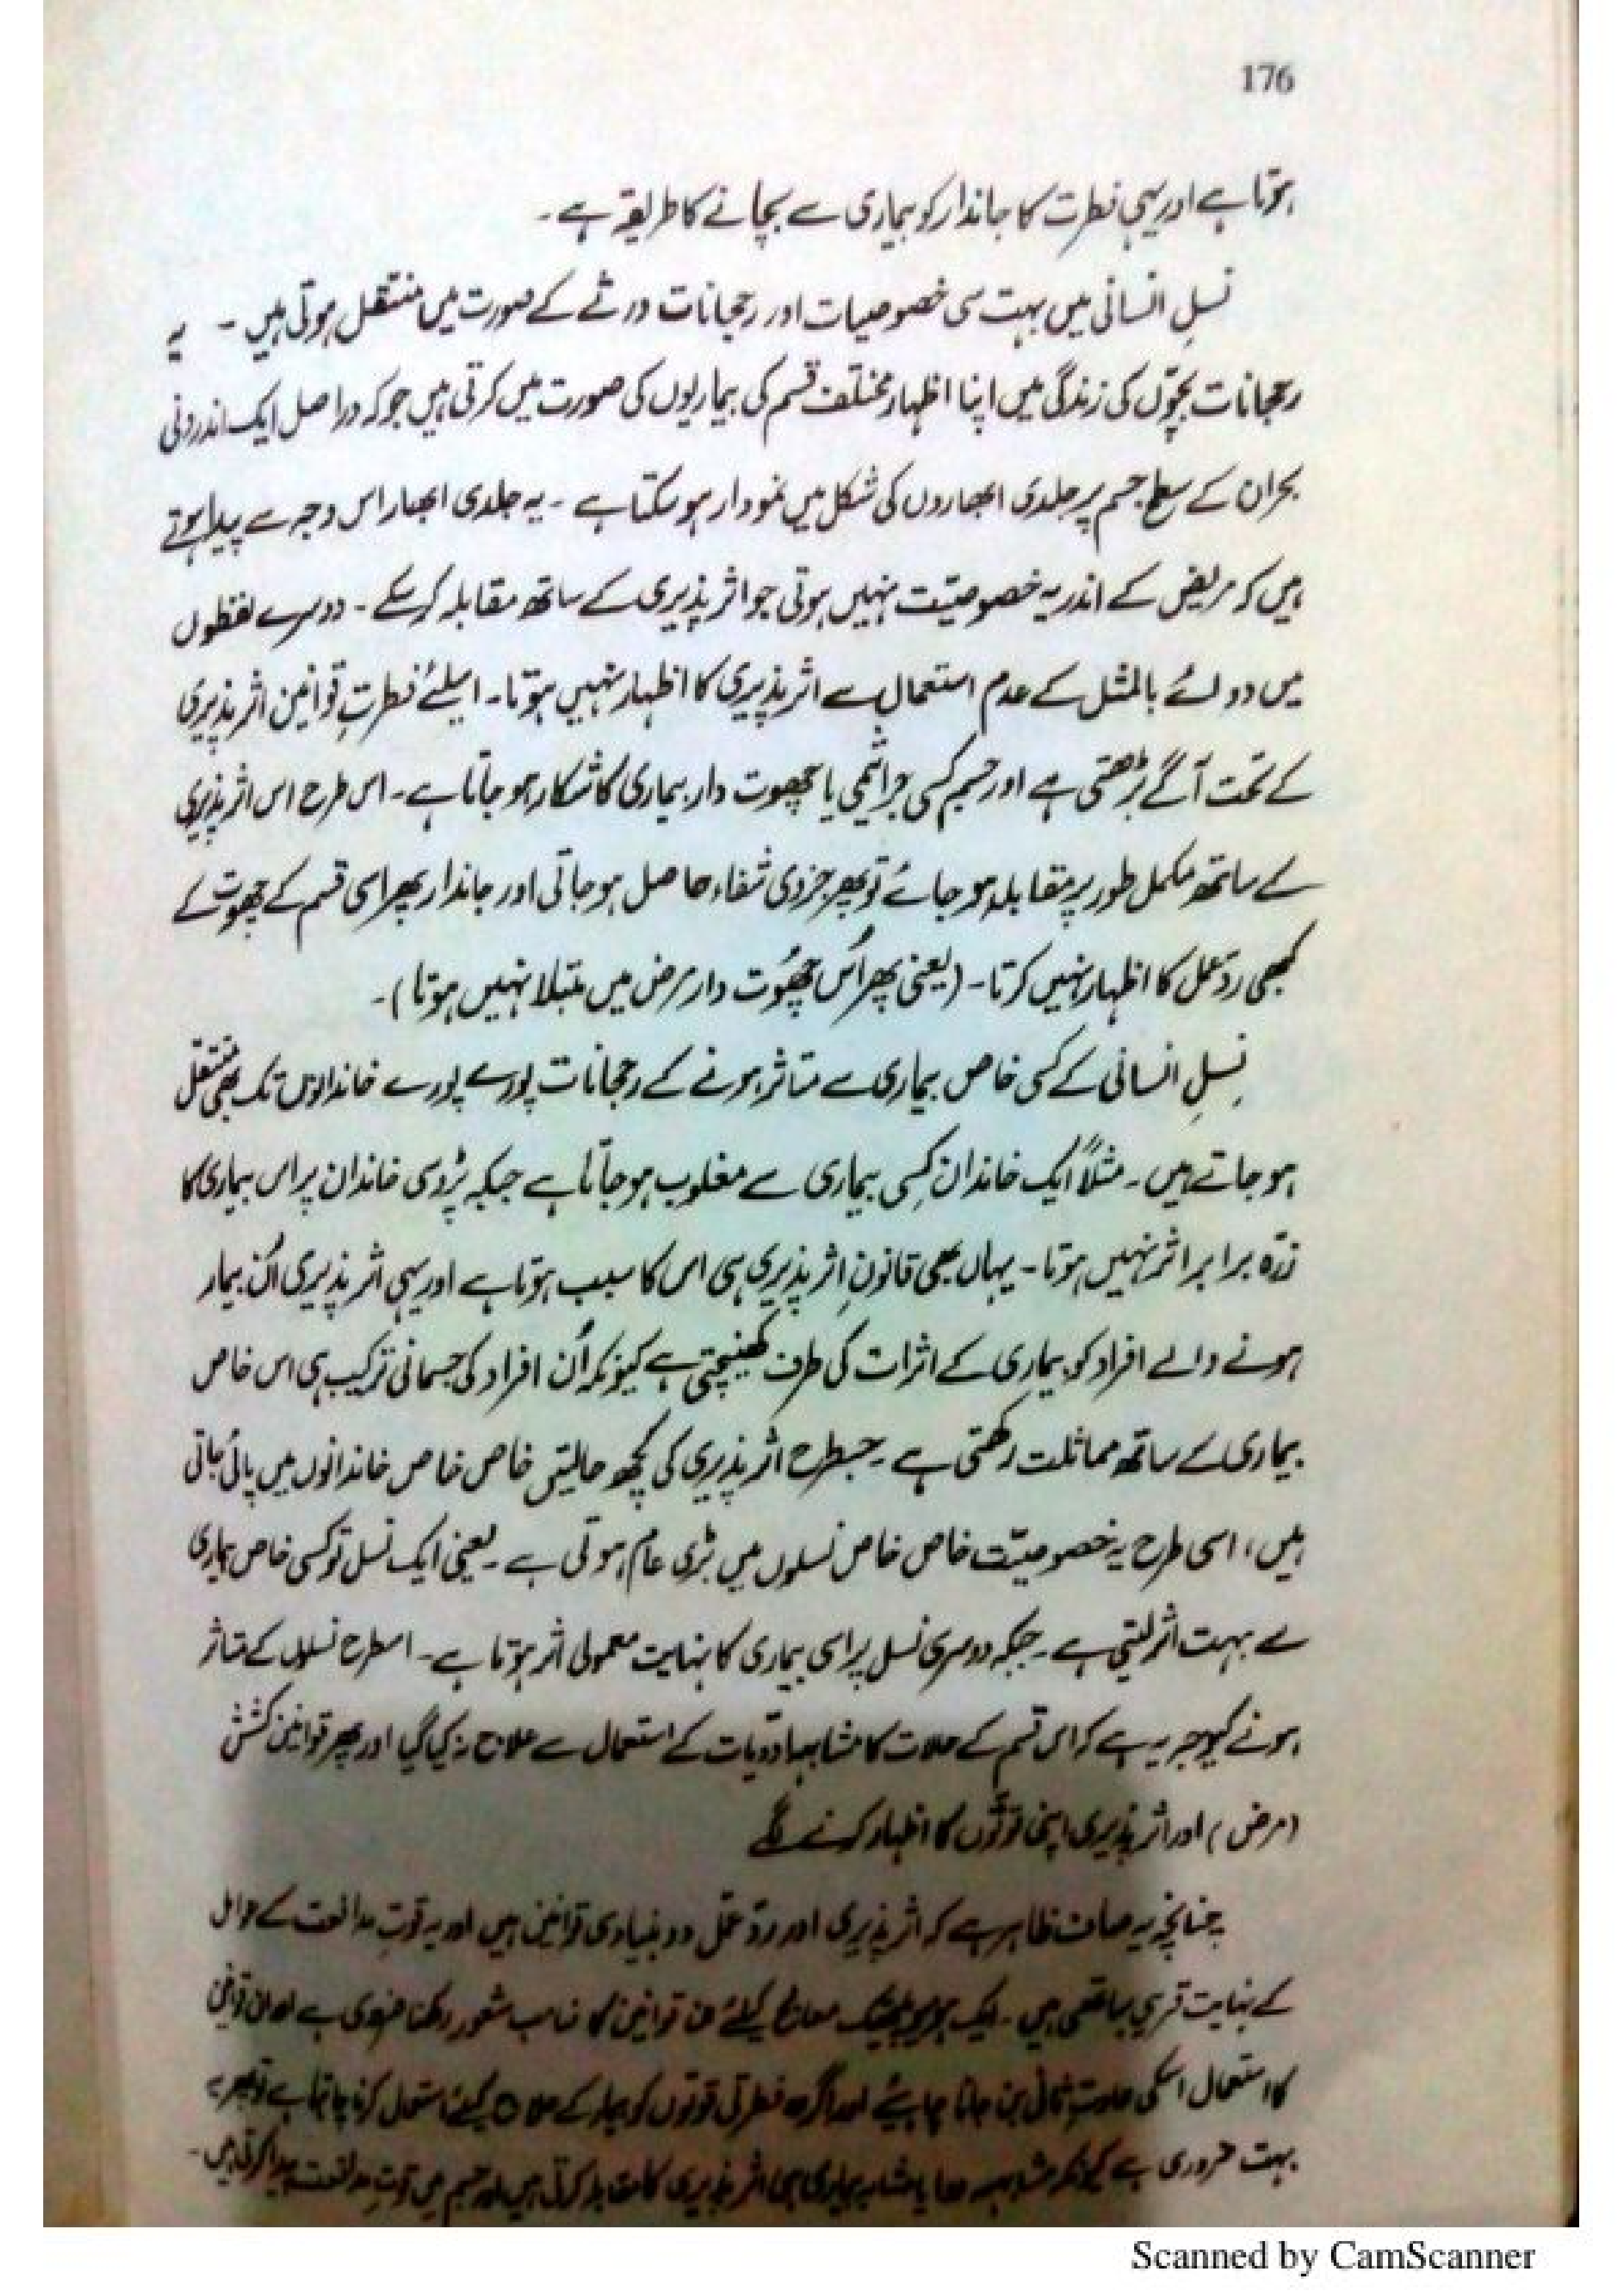 176
ہوتا ہے اور یہی فطرت کا جاندار کو بیماری سے بچانے کا طریقہ ہے ۔
نسلِ انسانی میں بہت سی خصوصیات اور رحجانات ورثے کے صورت میں منتقل ہوتی ہیں ۔ یہ
رحجانات بچّوں کی زندگی میں اپنا اظہار مختلف قسم کی بیماریوں کی صورت میں کرتی ہیں جو کہ دراصل ایک اندرونی
بحران کے سطح جسم پر جلدی ابھاروں کی شکل میں نمودار ہو سکتا ہے ۔ یہ جلدی ابھار اس وجہ سے پیدا ہوتے
ہیں کہ مریض کے اندر یہ خصوصیّت نہیں ہوتی جو اثر پذیری کے ساتھ مقابلہ کر سکے ۔ دوسرے لفظوں
میں دوائے بالمثل کے عدم استعمال سے اثر پذیری کا اظہار نہیں ہوتا۔ اسلئے فطرت قوانین اثر پذیری
کے تحت آگے بڑھتی ہے اور جسم کسی جراثیمی یا چھوت دار بیماری کا شکار ہو جاتا ہے ۔ اس طرح اس اثر پذیری
کے ساتھ مکمل طور پر مقابلہ ہو جائے تو پھر جزوی شفاء حاصل ہو جاتی اور جاندار پھر اسی قسم کے چھوت کے
کبھی ردّعمل کا اظہار نہیں کرتا ۔ (یعنی پھر اُس چھُوت دار مرض میں مبتلا نہیں ہوتا) ۔
نسلِ انسانی کے کسی خاص بیماری سے متاثر ہونے کے رحجانات پورے پورے خاندانوں تک بھی منتقل
ہو جاتے ہیں ۔ مثلاً ایک خاندان کِسی بیماری سے مغلوب ہو جاتا ہے جبکہ پڑوسی خاندان پر اس بیماری کا
ذرّہ برابر اثر نہیں ہوتا ۔ یہاں بھی قانونِ اثر پذیری ہی اس کا سبب ہوتا ہے اور یہی اثر پذیری اُن بیمار
ہونے والے افراد کو بیماری کے اثرات کی طرف کھینچتی ہے کیونکہ اُن افراد کی جسمانی ترکیب ہی اس خاص
بیماری کے ساتھ مماثلت رکھتی ہے ۔ جسطرح اثر پذیری کی کچھ حالتیں خاص خاص خاندانوں میں پائی جاتی
ہیں، اسی طرح یہ خصوصیّت خاص خاص نسلوں میں بڑی عام ہوتی ہے ۔ یعنی ایک نسل تو کسی خاص بیماری
سے بہت اثر لیتی ہے ۔ جبکہ دوسری نسل پر اسی بیماری کا نہایت معمولی اثر ہوتا ہے ۔ اسطرح نسلوں کے متاثر
ہونے کیوجہ یہ ہے کہ اس قسم کے حالات کا مشابہہ ادویات کے استعمال سے علاج نہ کیا گیا اور پھر قوانین کشش
(مرض) اور اثر پذیری اپنی قوتوں کا اظہار کرنے لگے
چنانچہ یہ صاف ظاہر ہے کہ اثر پذیری اور ردّ عمل دو بنیادی قوانین ہیں اور یہ قوتِ مدافعت کے عوامل
کے نہایت قریبی ساتھی ہیں ۔ ایک ہومیوپیتھک معالج کیلئے ان قوانین کا مناسب شعور رکھنا ضروری ہے اور ان قوانین
کا استعمال اسکی عادتِ ثانی بن جانا چاہیئے اور اگر وہ فطرتی قوتوں کو بیمار کے علاج کیلئے استعمال کرنا چاہتا ہے تو پھر یہ
بہت ضروری ہے کیونکہ مشابہہ دوا یا مشابہہ بیماری ہی اثر پذیری کا مقابلہ کرتی ہیں اور جسم میں قوتِ مدافعت پیدا کرتی ہیں ۔
Scanned by CamScanner